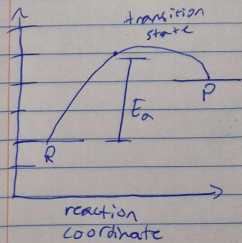 transition
state
P
Ea
R
reaction
coordinate